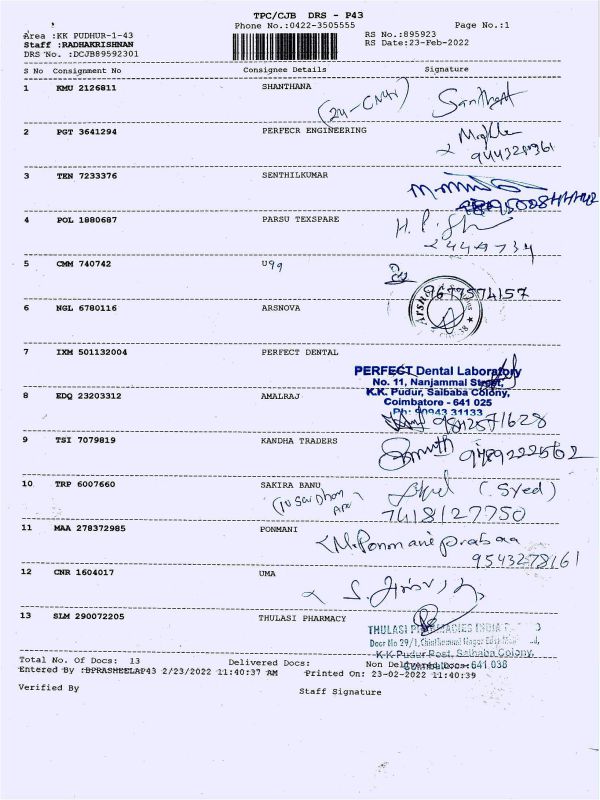 TPC/CJB DRS - P43
Phone No.:0422-3505555 Page No.:1
Area :KK PUDHUR-1-43 RS No.:895923
Staff :RADHAKRISHNAN RS Date:23-Feb-2022
DRS No. :DCJB89592301
S No Consignment No Consignee Details Signature
1 KMU 2126811 SHANTHANA
2 PGT 3641294 PERFECR ENGINEERING
3 TEN 7233376 SENTHILKUMAR
4 POL 1880687 PARSU TEXSPARE
2449734
5 CMM 740742 U99
9677574157
6 NGL 6780116 ARSNOVA
7 IXM 501132004 PERFECT DENTAL
PERFECT Dental Laboratory
No. 11, Nanjammal Street,
K.K. Pudur, Saibaba Colony,
8 EDQ 23203312 AMALRAJ
Coimbatore - 641 025
Ph: 90943 31133
9842571628
9 TSI 7079819 KANDHA TRADERS
9489222562
10 TRP 6007660 SAKIRA BANU (Syed)
7418127750
11 MAA 278372985 PONMANI
9543278161
12 CNR 1604017 UMA
13 SLM 290072205 THULASI PHARMACY
THULASI PHARMACIES INDIA
Door No 29/1,
K.K Pudur Post, Saibaba Colony,
Coimbatore - 641 038
Total No. Of Docs: 13 Delivered Docs: Non Delivered Docs:
Entered By :BPRASHEELAP43 2/23/2022 11:40:37 AM Printed On: 23-02-2022 11:40:39
Verified By Staff Signature